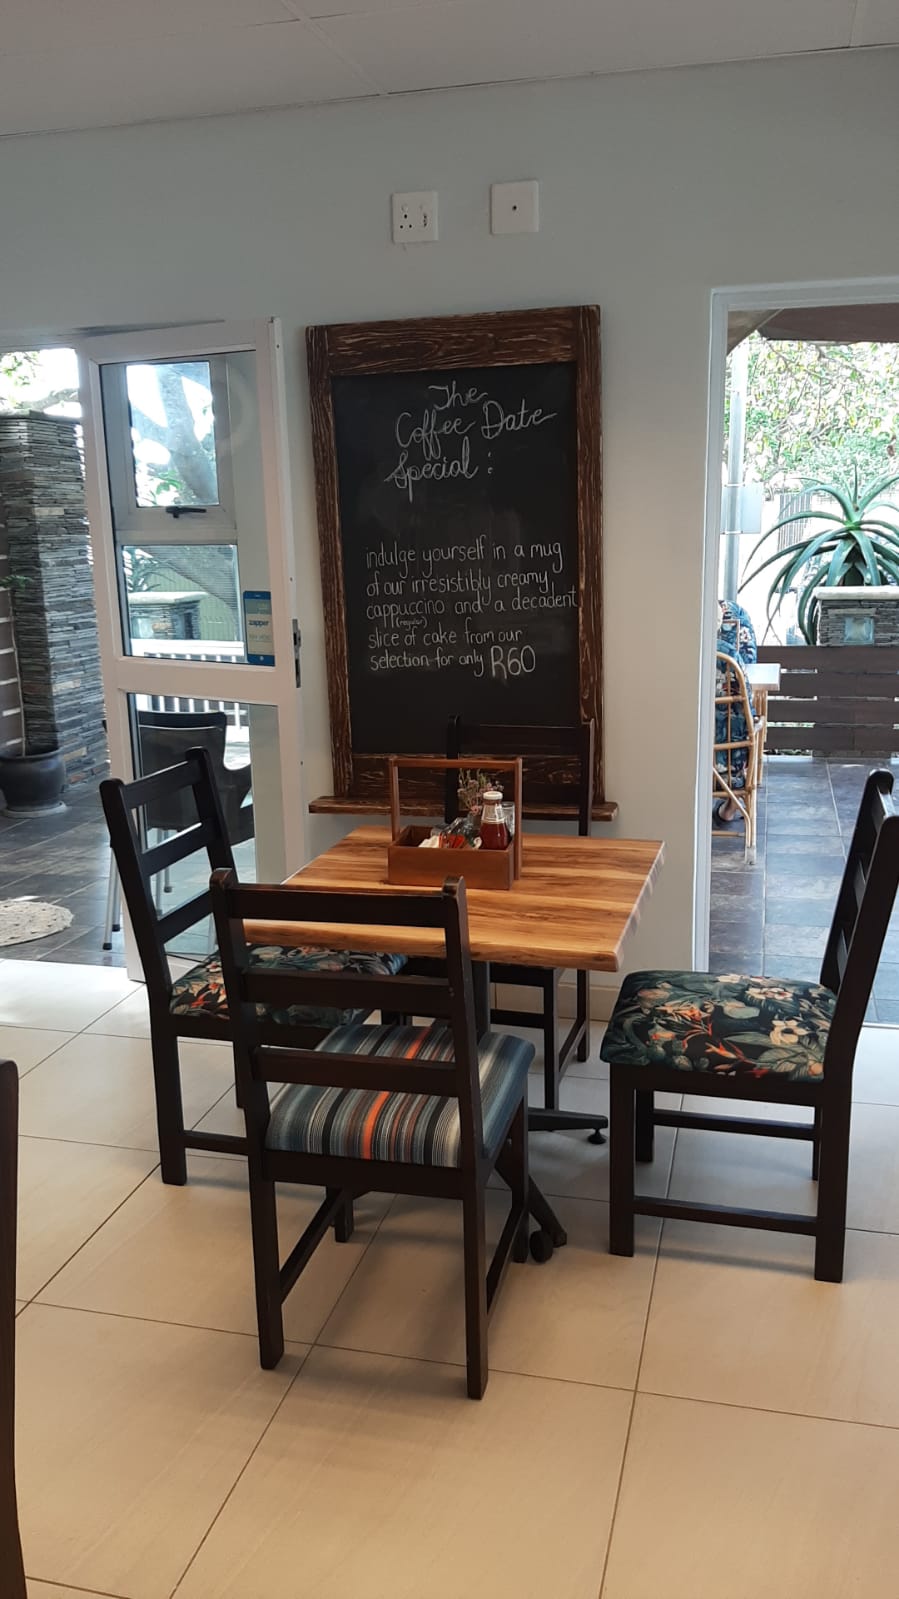 The
Coffee Date
Special :
indulge yourself in a mug
of our irresistibly creamy
cappuccino and a decadent
(regular)
slice of cake from our
selection for only R60
zapper